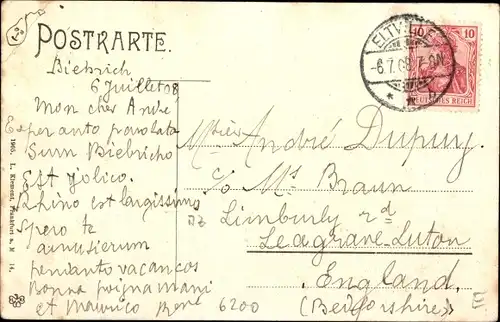 POSTKARTE.
ELTVILLE
-6.7.08. 7-8N
DEUTSCHES REICH
10
Biebrich
6 Juillet 08
Mon cher André
Esperanto parolata
Sum Biebricho
Est jolico.
Rhino est largissimo
Spero te
amusierum
pendanto vacancos
Bonna poignamani
et Maurico René
Mr André Dupuy
c/o Mrs Braun
Limbury rd
Leagrave-Luton
England.
(Bedfordshire)
6200
1905. L. Klement, Frankfurt a. M